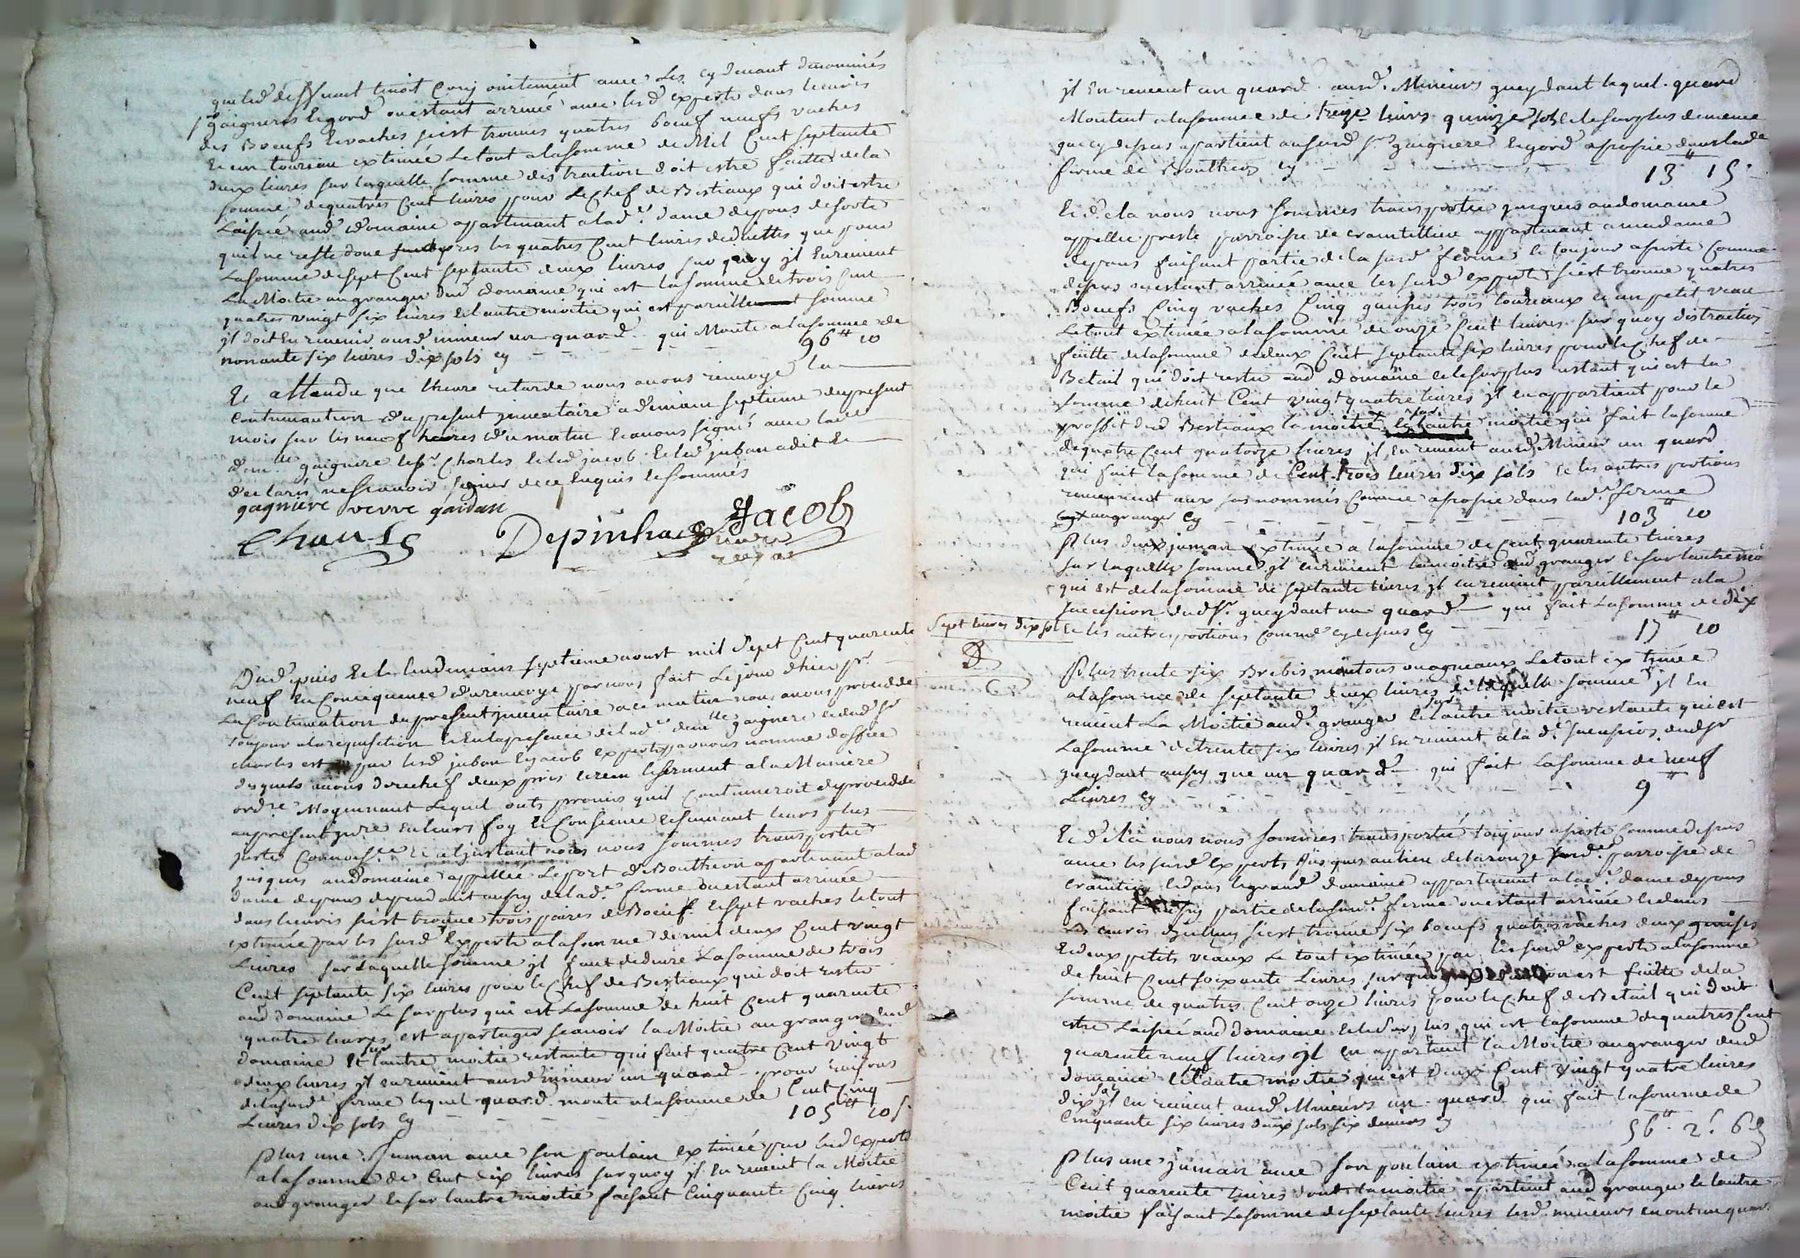 que led. deffunt tenoit conjointement avec les cy devant denommés
gaigneres Legord ou estant arrivé avec lesd. experts dans leuries
des Boeufs et vaches sest trouvés quatres boeuf neufs vaches
et un toureau extimée Le tout a la somme de Mil Cent septante
deux livres sur laquelle somme distraction doit estre faitte de la
somme de quatres Cent livres pour Le Chef de Bestiaux qui doit estre
Laissée aud. domaine appartenant a lad. dame depons de sorte
quil ne reste donc apres les quatres Cent livres deduittes que pour
La somme de sept Cent septante deux livres sur quoy jl En revient
La Moitié au granger dud. domaine qui est la somme de trois Cent
quatre vingt six livres Et l'autre moitié qui est pareille somme
jl doit En revenir aud. mineur un quard. qui Monte a la somme de
nonante six livres dix sols cy 96 ₶ 10
Et attendu que l'heure retarde nous avons renvoyé la
Continuation du present jnventaire a demain septieme du present
mois sur les neuf heures du matin Et avons signés avec lad.
dam. gaignere les. Charles Et led. jacob. Et led. juban a dit Et
declaré ne scavoir signer de ce Enquis Et sommés
gagniere verve gaidan
Charles Depinhac Jacob
Dud. puis Et le lendemain septieme aoust mil sept Cent quarente
neuf En Consequence du renvoye par nous fait Le jour d'hier pr
La Continuation du present jnventaire a ce matin nous avons procedde
toujour a la requisition Et En la presence de lad. dem.lle gaignere Et dud. sr
Charles est par lesd. juban Et jacob Experts par nous nommé d'office
desquels avons derechef deux pris Et receu le serment a la Maniere
ord.re Moyennant Lequel onts promis quil Continueroit de procedde
au present jnv.re En leurs foy Et Consience Et suivant leurs plus
justes Connoiss.ce Et a l'jnstant nous nous sommes transportés
jusques au domaine appellée Le port de Bouthéon apartenant a lad.
dame depons dependant aussy de lad. ferme ou estant arrivée
dans leuries sest trouvé trois paires de Boeuf. Et sept vaches le tout
extimée par les susd. Experts a la somme de mil deux Cent vingt
Livres sur Laquelle somme jl faut deduire La somme de trois
Cent septante six livres pour le Chef de Bestiaux qui doit rester
aud. domaine Le surplus qui est La somme de huit Cent quarente
quatre livres est a partager scavoir la Moitié au granger dud.
domaine Et sur l'autre moitié restante qui fait quatre Cent vingt
deux livres jl en revient aud. mineur un quard pour raison
de la susd. ferme lequel quard. monte a la somme de Cent Cinq
Livres dix sols Cy 105 ₶ 10 s.
Plus une juman avec son poulain extimée par lesd. experts
a la somme de Cent dix livres sur quoy jl En revient la Moitié
aud. granger Et sur l'autre moitié faisant Cinquante Cinq livres
jl En revient un quard. aud. Mineurs gueydant lequel. quard
Montent a la somme de treize livres quinze sols Et le surplus de meme
que cy dessus apartient aud. sr. gaignere Legord a propré dans lad.e
ferme de Bouthéon cy 13 ₶ 15
Et de la nous nous sommes transportés jusques au domaine
appellée presle parroisse de Craintillieu appartenant a madame
depons faisant partie de la susd. ferme Et toujour assisté Comme
dessus ou estant arrivée avec les susd. experts sest trouvé quatres
Boeufs Cinq vaches Cinq genises trois toureaux Et un petit veau
Le tout extimée a la somme de onze Cent livres sur quoy distraction
faitte de la somme de deux Cent septante six livres pour le Chef de
Betail qui doit rester aud. domaine Et le surplus restant qui est la
somme de huit Cent vingt quatre livres jl en appartient pour le
proffit dud. Bestiaux la moitié Et sur l'autre moitié qui fait la somme
de quatre Cent quatorze livres jl En revient aud. Mineur un quard
qui fait la somme de Cent trois livres dix sols Et les autres portions
reviennent aux susnommés Comme a propré dans lad. ferme
Et au granger Cy 103 ₶ 10
Plus deux juman extimée a la somme de Cent quarente livres
sur laquelle somme jl En revient la moitié aud. granger Et sur l'autre moi
qui est de la somme de septante livres jl en revient pareillement a la
succession dud. sr. gueydant un quard qui fait La somme de dix
sept livres dix sol Et les autres portions Comme cy dessus Cy 17 ₶ 10
Plus trente six Brebis moutons ou agneaux Le tout extimée
a la somme de septante deux livres de laquelle somme jl En
revient La Moitié aud. granger Et sur l'autre moitié restante qui est
La somme de trente six livres jl En revient a la d. succession dud. sr
gueydant aussy que un quard qui fait La somme de neuf
Livres Cy 9 ₶
Et de la nous nous sommes transportée toujour assisté Comme dessus
avec les susd. Experts jusques au lieu de la ronze susd. parroisse de
Craintillieu Et dans le grand domaine appartenant a lad. dame depons
faisant aussy partie de la susd. ferme ou estant arrivée Et dans
les euries d'Icelluy sest trouvé six boeufs quatres vaches deux genises
Et deux petits veaux Le tout extimée par les susd. experts a la somme
de huit Cent soixante Livres sur quoy distraction est faitte de la
somme de quatres Cent onze livres pour le Chef de Betail qui doit
estre Laissée aud. domaine Et le surplus qui est la somme de quatres Cent
quarente neuf livres jl en appartient la Moitié au granger dud.
domaine Et l'autre moitié qui est deux Cent vingt quatre livres
dix s. jl En revient aud. Mineurs un quard qui fait la somme de
Cinquante six livres deux sols six deniers Cy 56. ₶ 2.s 6 d
Plus une juman avec son poulain extimée a la somme de
Cent quarente livres dont la moitié apartient aud. granger Et l'autre
moitié faisant La somme de septante livres lesd. mineurs en ont un quar.